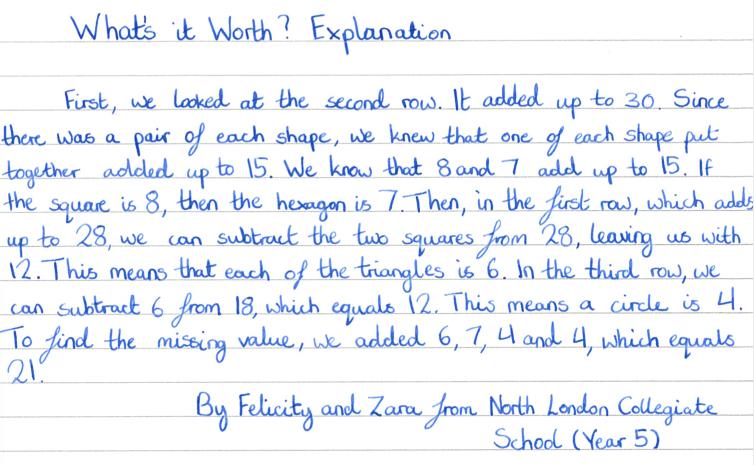 What's it Worth? Explanation
First, we looked at the second row. It added up to 30. Since
there was a pair of each shape, we knew that one of each shape put
together added up to 15. We know that 8 and 7 add up to 15. If
the square is 8, then the hexagon is 7. Then, in the first row, which adds
up to 28, we can subtract the two squares from 28, leaving us with
12. This means that each of the triangles is 6. In the third row, we
can subtract 6 from 18, which equals 12. This means a circle is 4.
To find the missing value, we added 6, 7, 4 and 4, which equals
21.
By Felicity and Zara from North London Collegiate
School (Year 5)